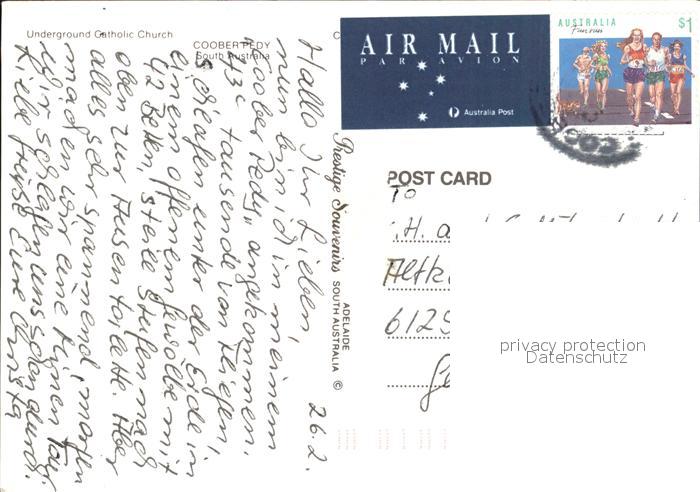 Underground Catholic Church
COOBER PEDY
South Australia
C
AIR MAIL
PAR AVION
Australia Post
AUSTRALIA $1
Fun run
POST CARD
To
Altk
6129
privacy protection
Datenschutz
Prestige Souvenirs
ADELAIDE
SOUTH AUSTRALIA ©
26.2.
Hallo Ihr Lieben,
nun bin ich in meinem
"Coober Pedy" angekommen.
Hitze tausende von Fliegen,
schlafen unter der Erde in
einem offenem Gewölbe mit
42 Betten, steile Stufen nach
oben zur Aussentoilette. Aber
alles sehr spannend, morgen
machen wir eine Minen Tour.
Wir schlafen uns schon durch.
Liebe Grüsse Eure Christa